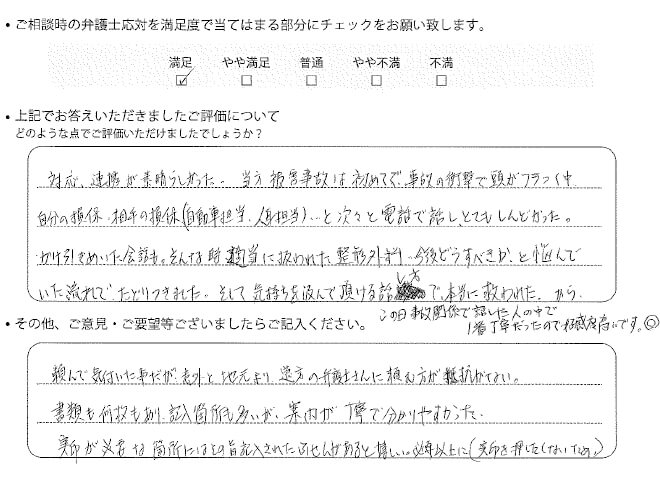 ・ご相談時の弁護士応対を満足度で当てはまる部分にチェックをお願い致します。
満足 やや満足 普通 やや不満 不満
☑ □ □ □ □
・上記でお答えいただきましたご評価について
どのような点でご評価いただけましたでしょうか？
対応、連携が素晴らしかった。当方被害事故は初めてで、事故の衝撃で頭がフラつく中
自分の損保、相手の損保(自動車担当、人身担当)…と次々と電話で話し、とてもしんどかった。
かけ引きめいた会話も。そんな時 適当に扱われた整形外科… 今後どうすべきか、と悩んで
いた流れでたどりつきました。そして気持ちを汲んで頂ける話し方で、本当に救われた。から
この日事故関係で話した人の中で
1番丁寧だったので好感度高いです。◎
・その他、ご意見・ご要望等ございましたらご記入ください。
頼んで気付いた事だが、意外と地元より遠方の弁護士さんに頼む方が抵抗がない。
書類も何枚もあり、記入箇所も多いが、案内が丁寧で分かりやすかった。
実印が必要な箇所にはその旨記入されたふせんがあると嬉しい。必要以上に(実印を押したくないため)